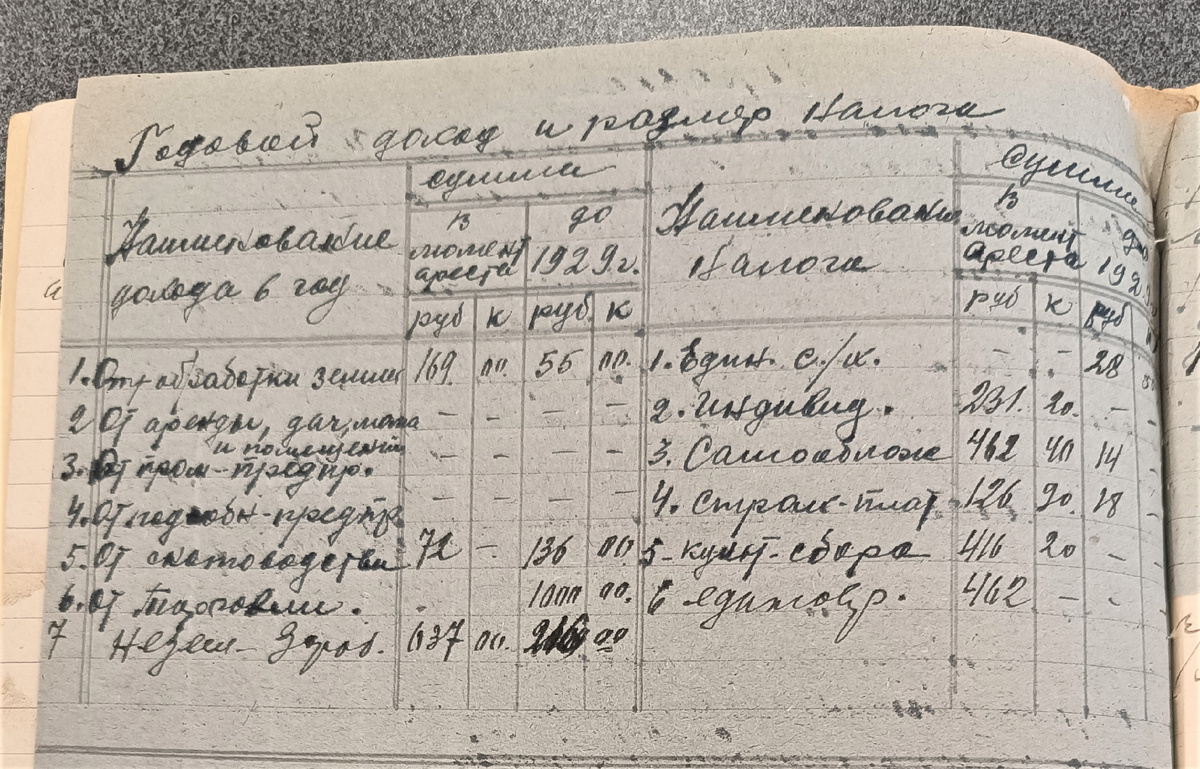 Годовой доход и размер налога
Наименование дохода в год | сумма | Наименование налога | Сумма
в момент ареста | до 1929 г. | в момент ареста | до 192
руб | к | руб | к | руб | к | руб
1. От обработки земли | 169 | 00. | 55 | 00. | 1. Един. с./х. | – | – | 28
2 От аренды, дач, | – | – | – | – | 2. Индивид. | 231. | 20. | –
и помещений
3. От пром-предпр. | – | – | – | – | 3. Самооблож | 462 | 40 | 14
4. От подсобн-предпр | – | – | – | – | 4. Страх-плат | 126 | 90. | 18
5. От скотоводства | 72 | – | 136 | 00. | 5- культ-сбора | 416 | 20 | –
6. От торговли. | . | 1000 | 00. | 6 единовр. | 462 | – | –
7 Незем- Зараб. | 637 | 00. | 00